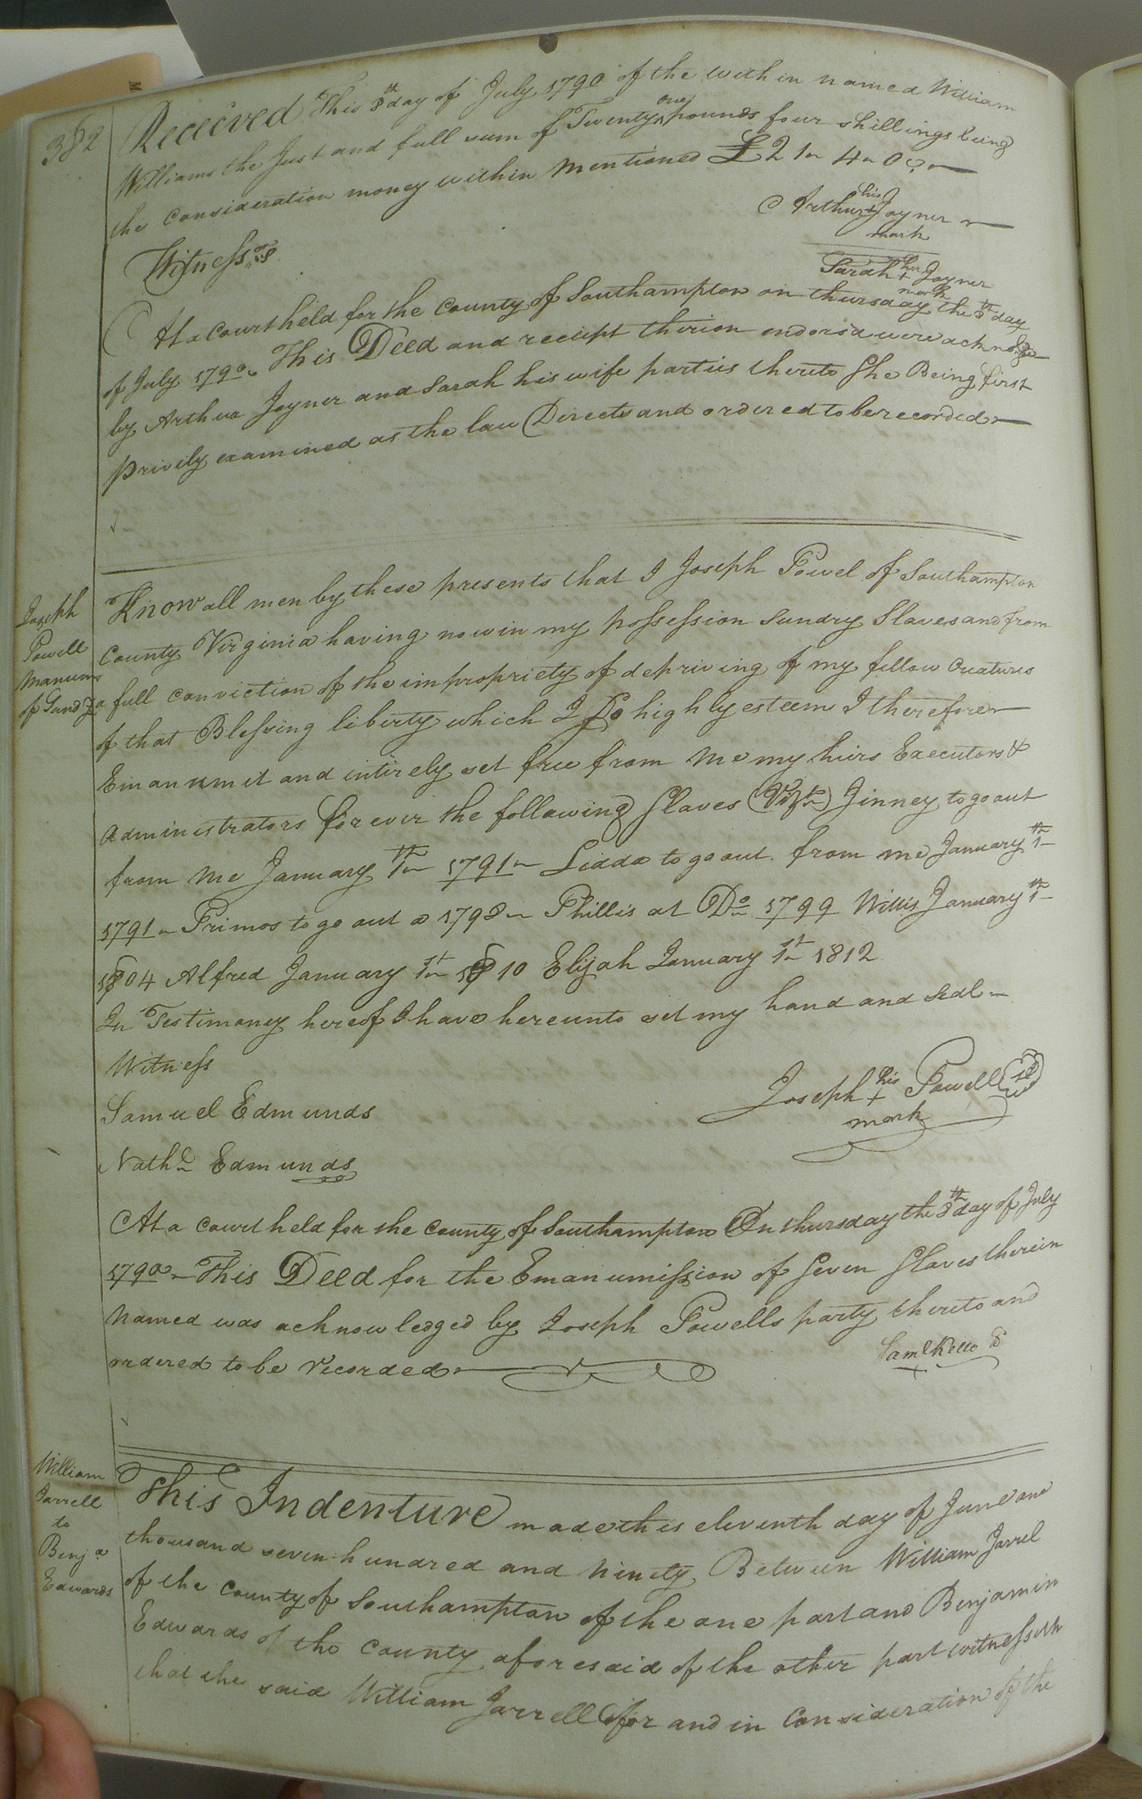 382
Received This 8th day of July 1790 of the within named William
Williams the Just and full sum of Twenty one pounds four shillings being
the Consideration money within Mentioned £21 " 4 " 0
his
Arthur + Joyner
mark
Witnesses
her
Sarah + Joyner
mark
At a Court held for the County of Southampton on thursday the 8th day
of July 1790. This Deed and receipt thereon endorsd were acknolgd
by Arthur Joyner and Sarah his wife parties thereto She Being first
privily examined as the law Directs and ordered to be recorded
Joseph
Powell
Manums
of Sund
Know all men by these presents that I Joseph Powel of Southampton
County Virginia having now in my possession Sundry Slaves and from
a full conviction of the impropriety of depriving of my fellow Creatures
of that Blessing liberty which I Do highly esteem I therefore
Emanumit and intirely set free from Me my heirs Executors &
Administrators for ever the following Slaves (Vizt) Jinney to go out
from Me January 1th 1791 Lidda to go out from me January 1th
1791 Primos to go out a 1798 Phillis at Do 1799 Willis January 1th
1804 Alfred January 1st 1810 Elijah January 1st 1812
In Testimoney hereof I have hereunto set my hand and Seal
Witness
Samuel Edmunds
Nathl Edmunds
his
Joseph + Powell
mark
At a Court held for the County of Southampton On thursday the 8th day of July
1790. This Deed for the Emanumission of Seven Slaves therein
Named was acknowledged by Joseph Powells party thereto and
ordered to be recorded
Saml Kello
William
Jarrell
to
Benja
Edwards
This Indenture made this eleventh day of June one
thousand seven hundred and Ninety Between William Jarrel
of the County of Southampton of the one part and Benjamin
Edwards of the County aforesaid of the other part witnesseth
that the said William Jarrell for and in Consideration of the